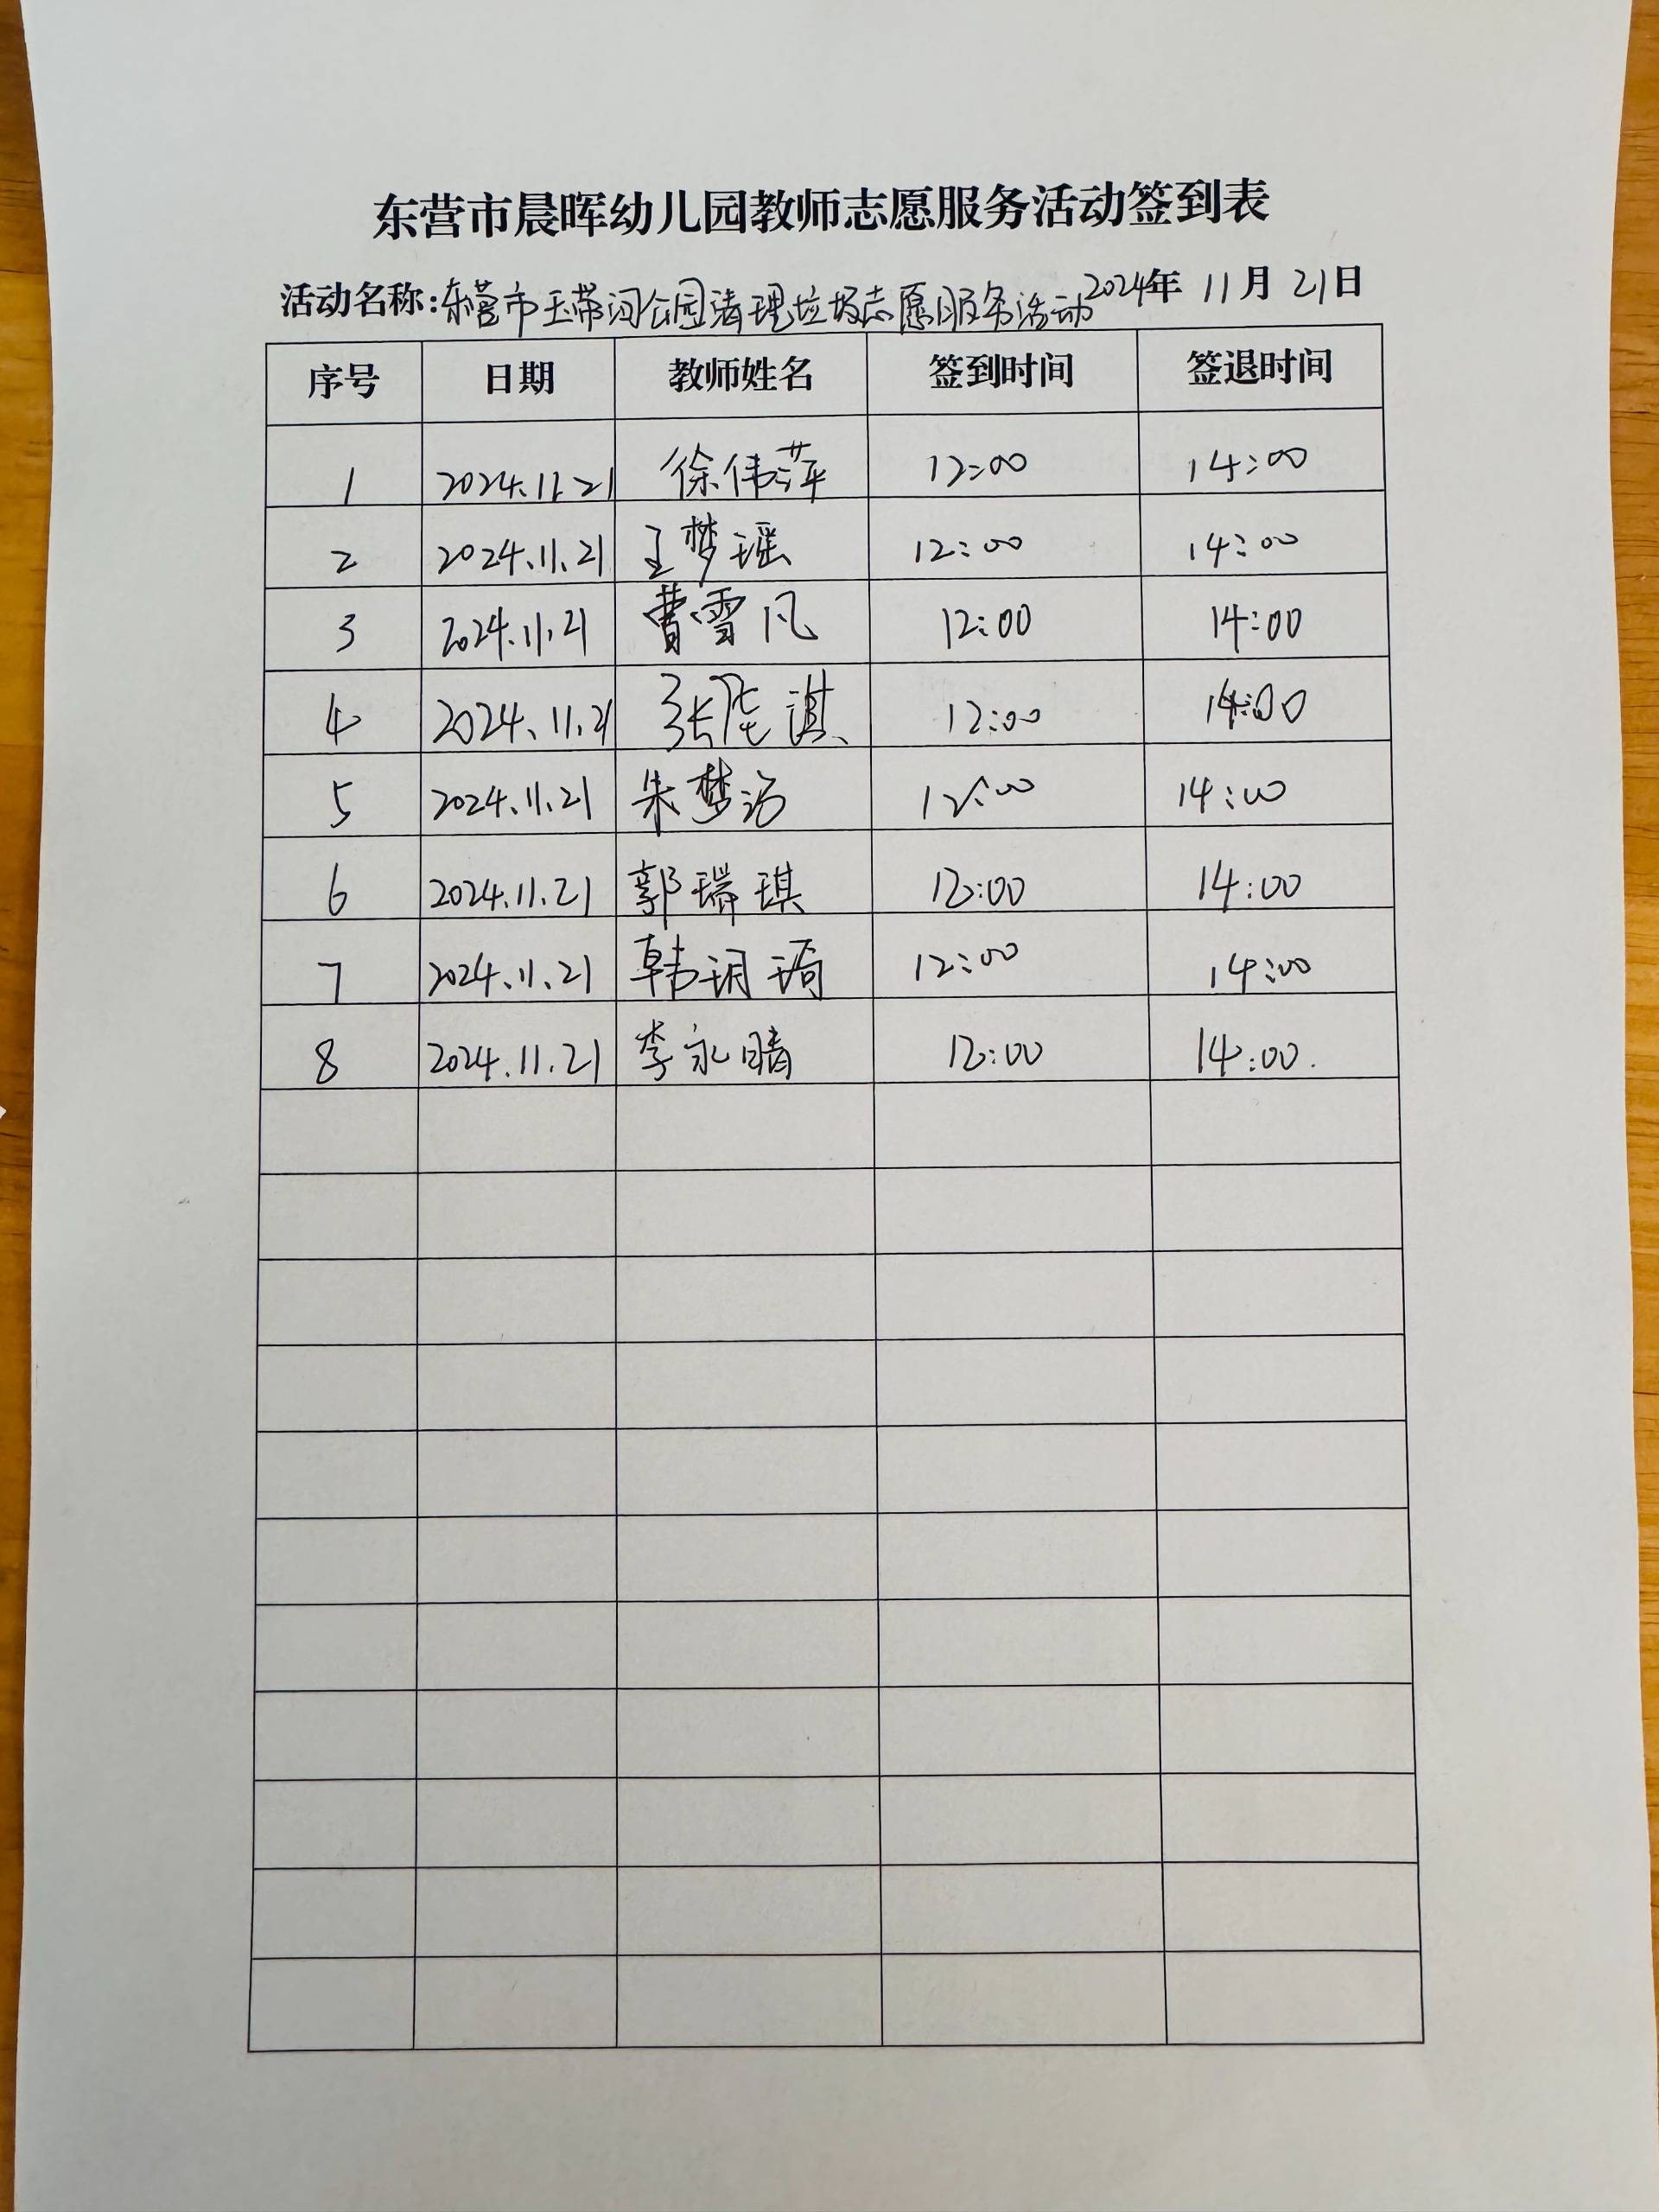 东营市晨晖幼儿园教师志愿服务活动签到表
活动名称:东营市玉带河公园清理垃圾志愿服务活动 2024年 11月 21日
序号 日期 教师姓名 签到时间 签退时间
1 2024.11.21 徐伟萍 12:00 14:00
2 2024.11.21 王梦瑶 12:00 14:00
3 2024.11.21 曹雪凡 12:00 14:00
4 2024.11.21 张 淇 12:00 14:00
5 2024.11.21 朱梦 12:00 14:00
6 2024.11.21 郭瑞琪 12:00 14:00
7 2024.11.21 韩玥琦 12:00 14:00
8 2024.11.21 李永晴 12:00 14:00.